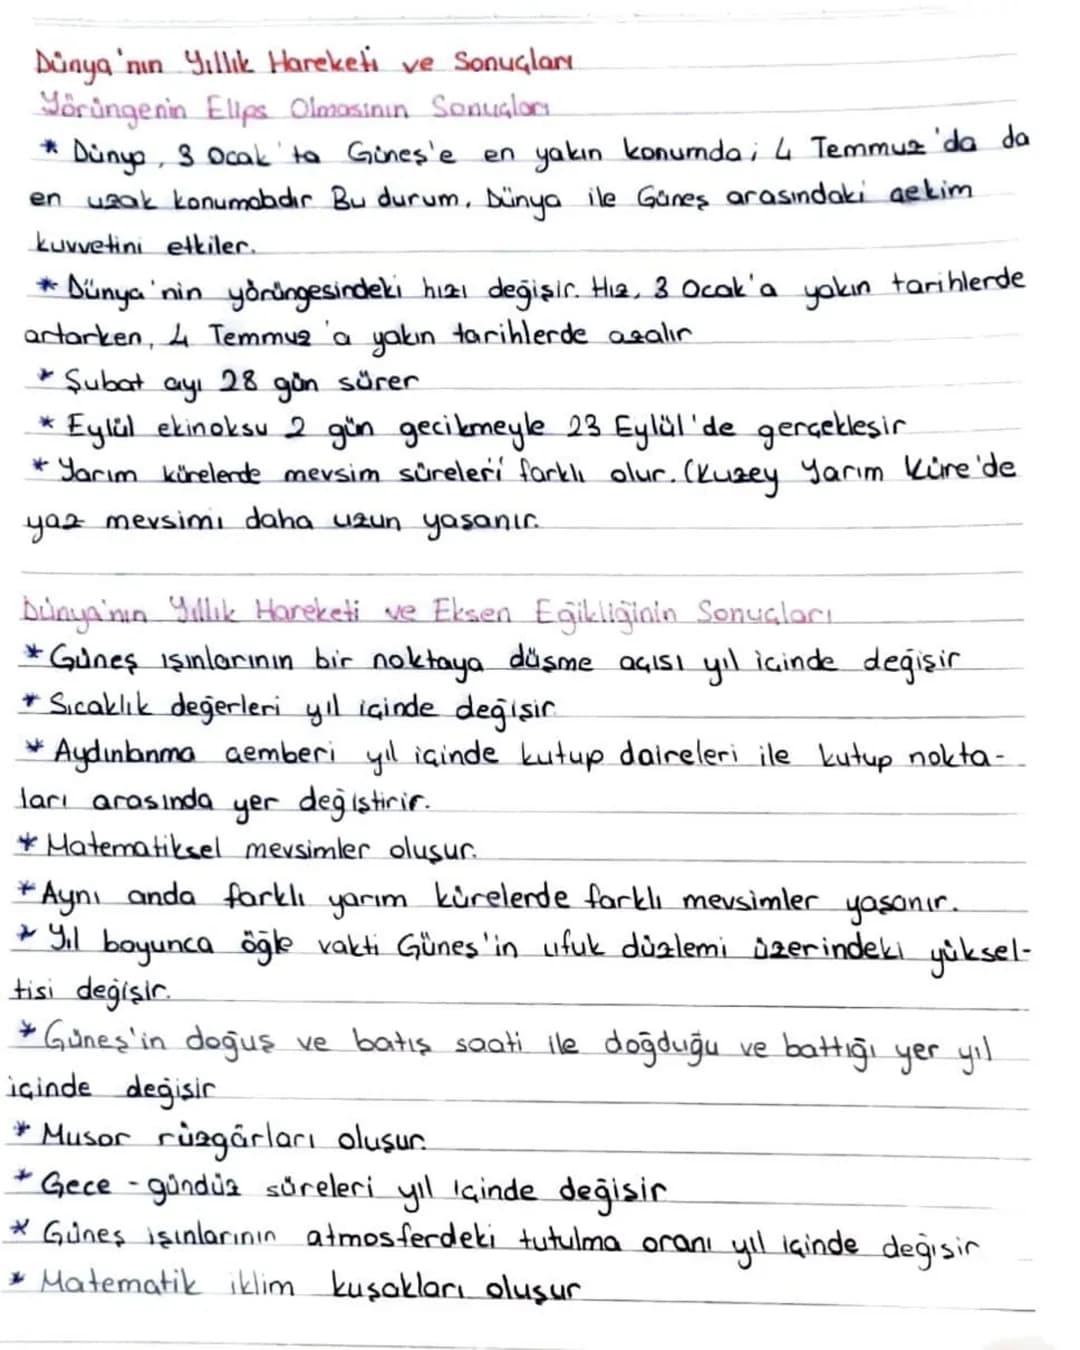 Dünya'nın Yıllık Hareketi ve Sonuçları
Yörüngenin Elips Olmasının Sonuçları
* Dünya, 3 Ocak'ta Güneş'e en yakın konumda; 4 Temmuz'da da
en uzak konumdadır Bu durum, Dünya ile Güneş arasındaki çekim
kuvvetini etkiler.
* Dünya'nin yörüngesindeki hızı değişir. Hız, 3 Ocak'a yakın tarihlerde
artarken, 4 Temmuz'a yakın tarihlerde azalır
* Şubat ayı 28 gün sürer
* Eylül ekinoksu 2 gün gecikmeyle 23 Eylül'de gerçekleşir
* Yarım kürelerde mevsim süreleri farklı olur. (Kuzey Yarım Küre'de
yaz mevsimi daha uzun yaşanır.
Dünya'nın Yıllık Hareketi ve Eksen Eğikliğinin Sonuçları
* Güneş ışınlarının bir noktaya düşme açısı yıl içinde değişir
* Sıcaklık değerleri yıl içinde değişir
* Aydınlanma çemberi yıl içinde kutup daireleri ile kutup nokta-
ları arasında yer değiştirir.
* Matematiksel mevsimler oluşur.
* Aynı anda farklı yarım kürelerde farklı mevsimler yaşanır.
* Yıl boyunca öğle vakti Güneş'in ufuk düzlemi üzerindeki yüksel-
tisi değişir.
* Güneş'in doğuş ve batış saati ile doğduğu ve battığı yer yıl
içinde değişir
* Musor rüzgârları oluşur.
* Gece - gündüz süreleri yıl içinde değişir
* Güneş ışınlarının atmosferdeki tutulma oranı yıl içinde değişir
* Matematik iklim kuşakları oluşur